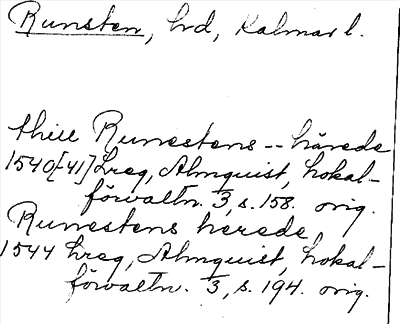 Runsten, hrd, Kalmar l.
thill Runestens -- härede
1540[-41] Lreg, Almquist, Lokal-
förvaltn. 3, s. 158. orig.
Runestens herede
1544 Lreg, Almquist, Lokal-
förvaltn. 3, s. 194. orig.